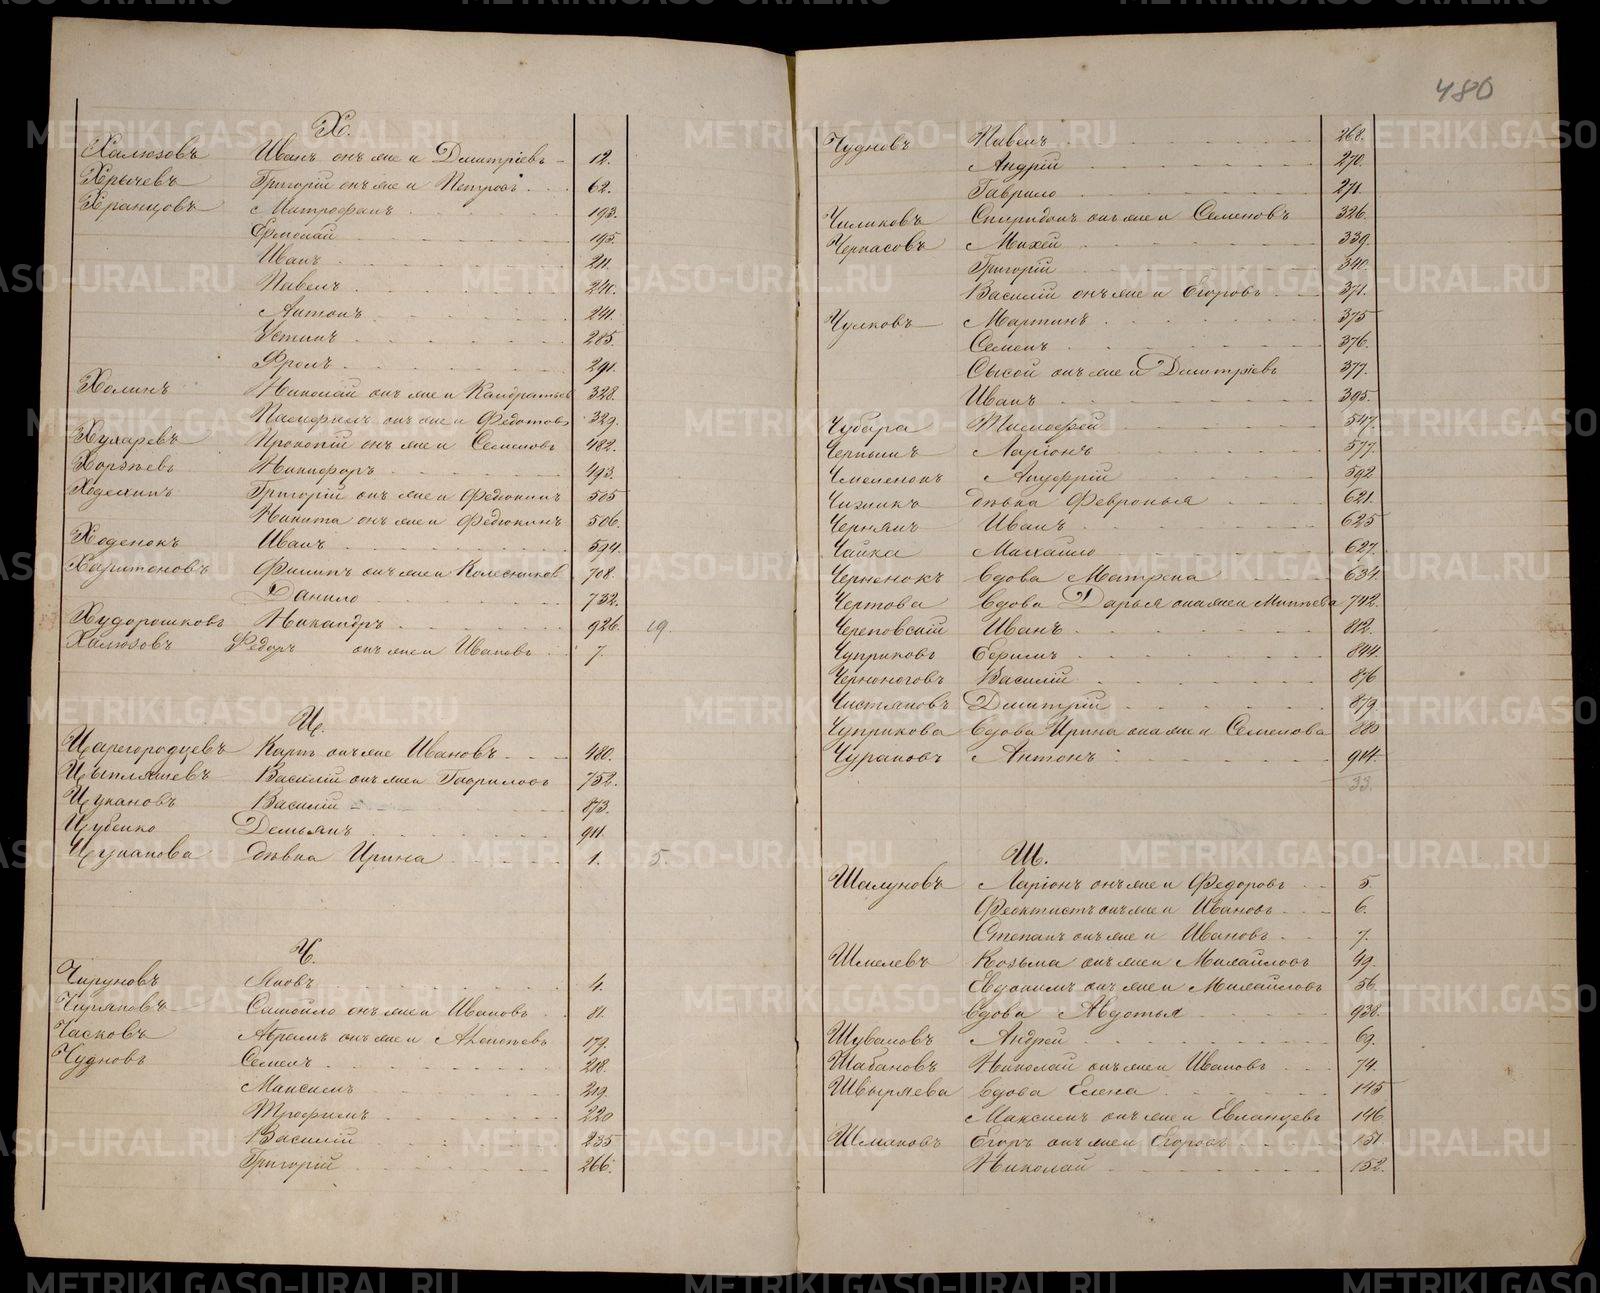 Х.
Халюзовъ Иванъ онъ же и Дмитріевъ 12.
Хрычевъ Григорій онъ же и Петровъ 62.
Хранцовъ Митрофанъ 193.
Ермолай 195.
Иванъ 211.
Павелъ 240.
Антонъ 241.
Устинъ 285.
Фролъ 291.
Холинъ Николай онъ же и Кондратьев 328.
онъ же и Федотовъ 329.
Хуларевъ Прокопій онъ же и Семеновъ 482.
Никифоръ 493.
Григорій онъ же и Федюнинъ 505
Никита онъ же и Федюнинъ 506.
Ходенокъ Иванъ 594.
Харитоновъ Филипъ онъ же и Колесников 708.
Данило 732.
Худорошковъ Никандръ 926. 19.
Халюзовъ Федоръ онъ же и Ивановъ 7.
Ц.
Царегородцевъ Карпъ онъ же Ивановъ 480.
Цыпляшевъ Василій онъ же и Гавриловъ 752.
Цукановъ Василій 873.
Цубенко Демьянъ 911.
Цуканова дѣвка Ирина 1. 5.
Ч.
Чируновъ Яковъ 4.
Самойло онъ же и Ивановъ 81.
Часковъ Абрамъ онъ же и 179.
Чудновъ Семенъ 218.
Максимъ 219.
Трофимъ 220
Василій 235
Григорій 266.
480
Чудновъ Павелъ 268.
Андрѣй 270.
Гаврило 271.
Чиликовъ Спиридонъ онъ же и Семеновъ 326.
Черкасовъ Михей 339.
Григорій 340.
Василій онъ же и Егоровъ 371.
Чулковъ Мартинъ 375
Семенъ 376.
Сысой онъ же и Дмитріевъ 377.
Иванъ 395.
Чубара Тимофей 547.
Черныхъ Ларіонъ 577.
Чмеленокъ Ануфрій 592
Чизмикъ дѣвка Февронья 621.
Чернякъ Иванъ 625
Чайка Михайло 627.
Черненокъ вдова Матрена 634.
Чертова вдова Дарья она же и 742.
Череповскій Иванъ 812.
Чуприковъ Ефимъ 844.
Черноноговъ Василій 876
Чистяковъ Дмитрій 879.
Чуприкова вдова Ирина она же и Семенова 880
Чураковъ Антонъ 914.
33.
Ш.
Шалуновъ Ларіонъ онъ же и Федоровъ 5.
Феоктистъ онъ же и Ивановъ 6.
Степанъ онъ же и Ивановъ 7.
Шмелевъ Козьма онъ же и Михайловъ 49.
Евдокимъ онъ же и Михайловъ 56.
вдова Авдотья 938.
Шуваловъ Андрей 69.
Шабановъ Николай онъ же и Ивановъ 74.
Швыряева вдова Елена 145
Максимъ онъ же и 146.
Шмаковъ Егоръ онъ же и Егоровъ 151.
Николай 152.
METRIKI.GASO-URAL.RU